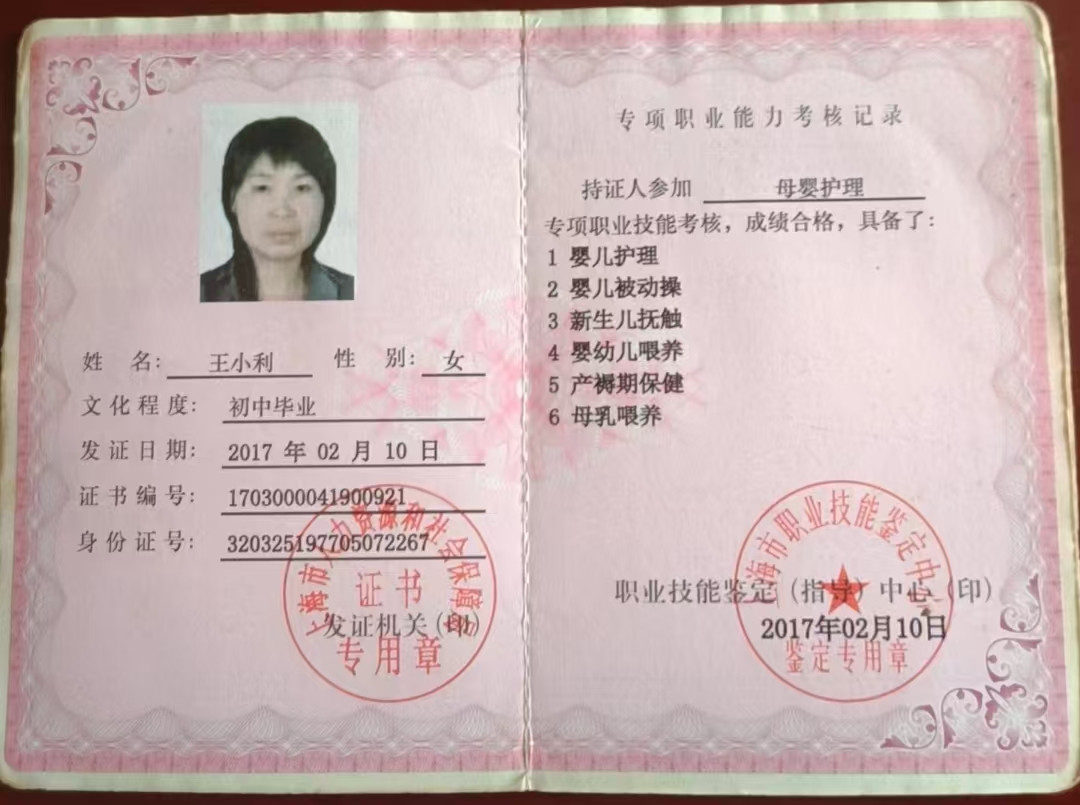 姓 名： 王小利 性 别： 女
文化程度： 初中毕业
发证日期： 2017 年 02 月 10 日
证书编号： 1703000041900921
身份证号： 320325197705072267
上海市人力资源和社会保障局
证书
发证机关(印)
专用章
专项职业能力考核记录
持证人参加 母婴护理
专项职业技能考核，成绩合格，具备了：
1 婴儿护理
2 婴儿被动操
3 新生儿抚触
4 婴幼儿喂养
5 产褥期保健
6 母乳喂养
上海市职业技能鉴定中心
职业技能鉴定（指导）中心（印）
2017年02月10日
鉴定专用章